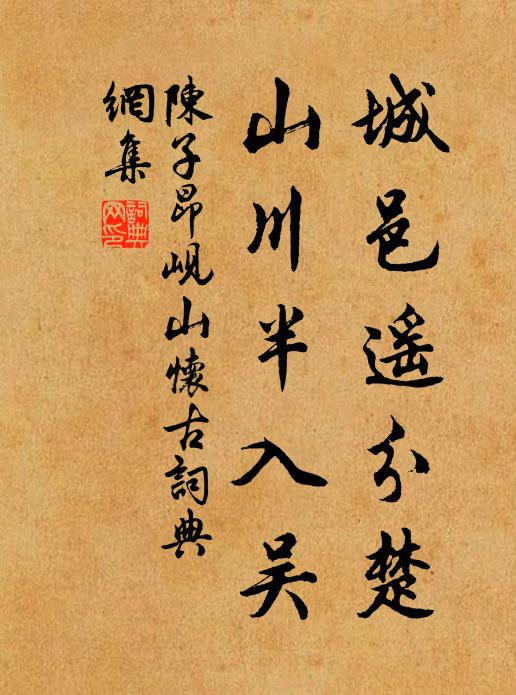 城邑遥分楚
山川半入吴
陳子昂峴山懷古詞典
網集